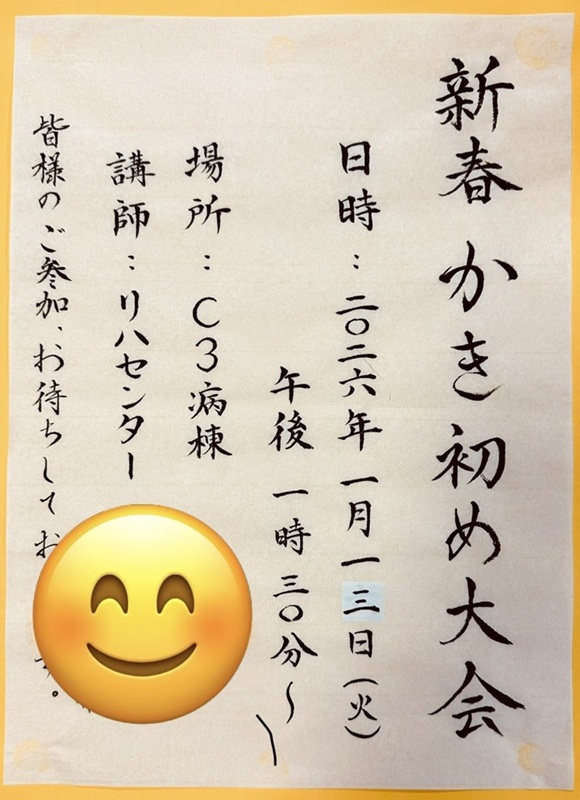 新春かき初め大会
日時：二〇二六年一月一三日（火）
午後一時三〇分～
場所：C3病棟
講師：リハセンター
皆様のご参加、お待ちしてお
す。